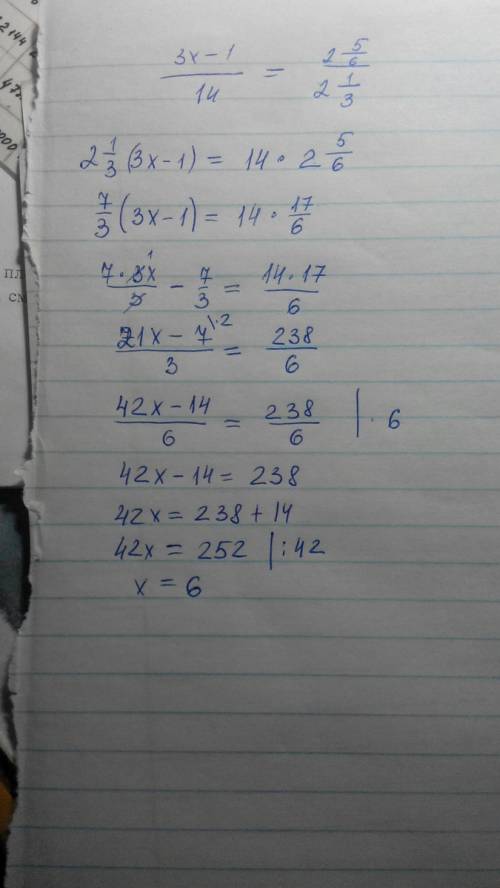 2144
472
000
пл
см
(3x-1)/14 = (2 5/6)/(2 1/3)
2 1/3 (3x-1) = 14 · 2 5/6
7/3 (3x-1) = 14 · 17/6
(7·3x)/3 ¹ - 7/3 = (14·17)/6
(21x-7)/3 \·2 = 238/6
(42x-14)/6 = 238/6 |· 6
42x-14 = 238
42x = 238+14
42x = 252 |:42
x = 6